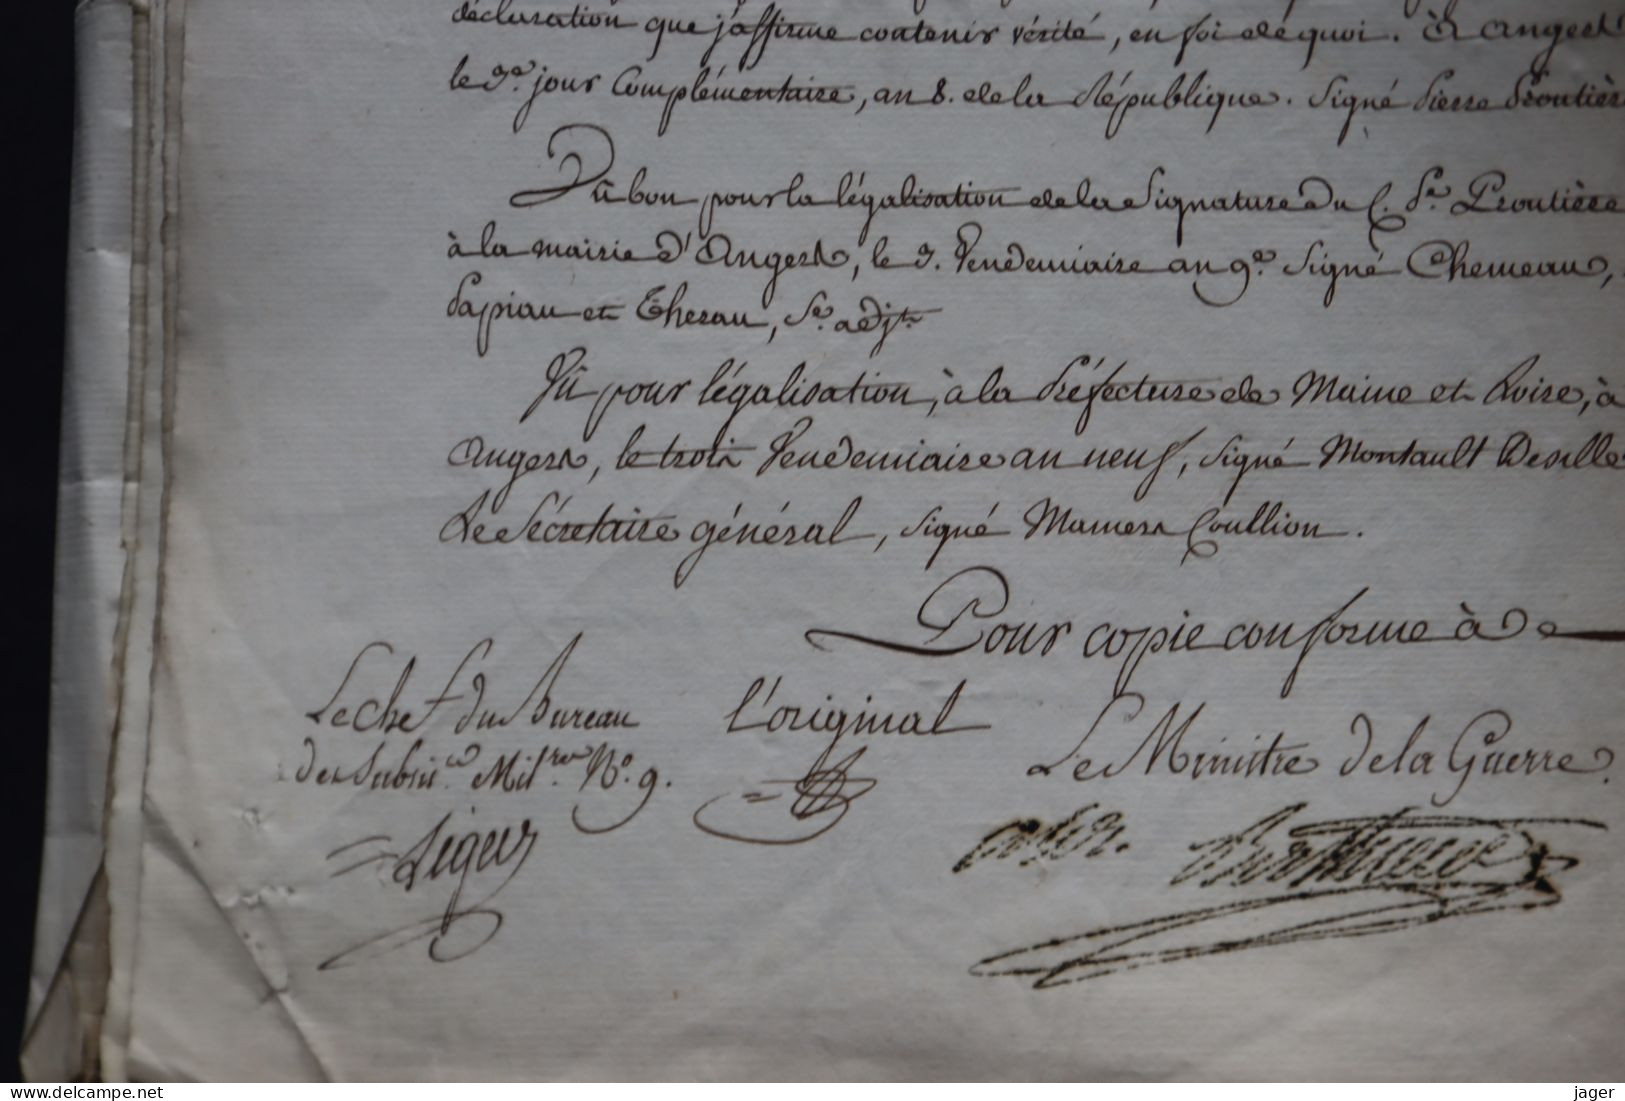 déclaration que j'affirme contenir vérité, en foi de quoi. à Angers
le 3e. jour Complémentaire, an 8. de la République. Signé Pierre Proutière
Vû bon pour la légalisation de la Signature du C. Pre. Proutière
à la mairie d'Angers, le 3. Vendemiaire an 9e. Signé Chemeau,
Papiau et Therau, Se. adjt.
Vû pour légalisation, à la Préfecture de Maine et Loire, à
Angers, le trois Vendemiaire an neuf, signé Montault Desilles
Le Sécretaire général, signé Mamers Coullion.
Pour copie conforme à
l'original
Le Chef du Bureau
des Subsis.ces Mil.res No. 9.
Le Ministre de la Guerre.
Liger
Alex. Berthier
www.delcampe.net
jager